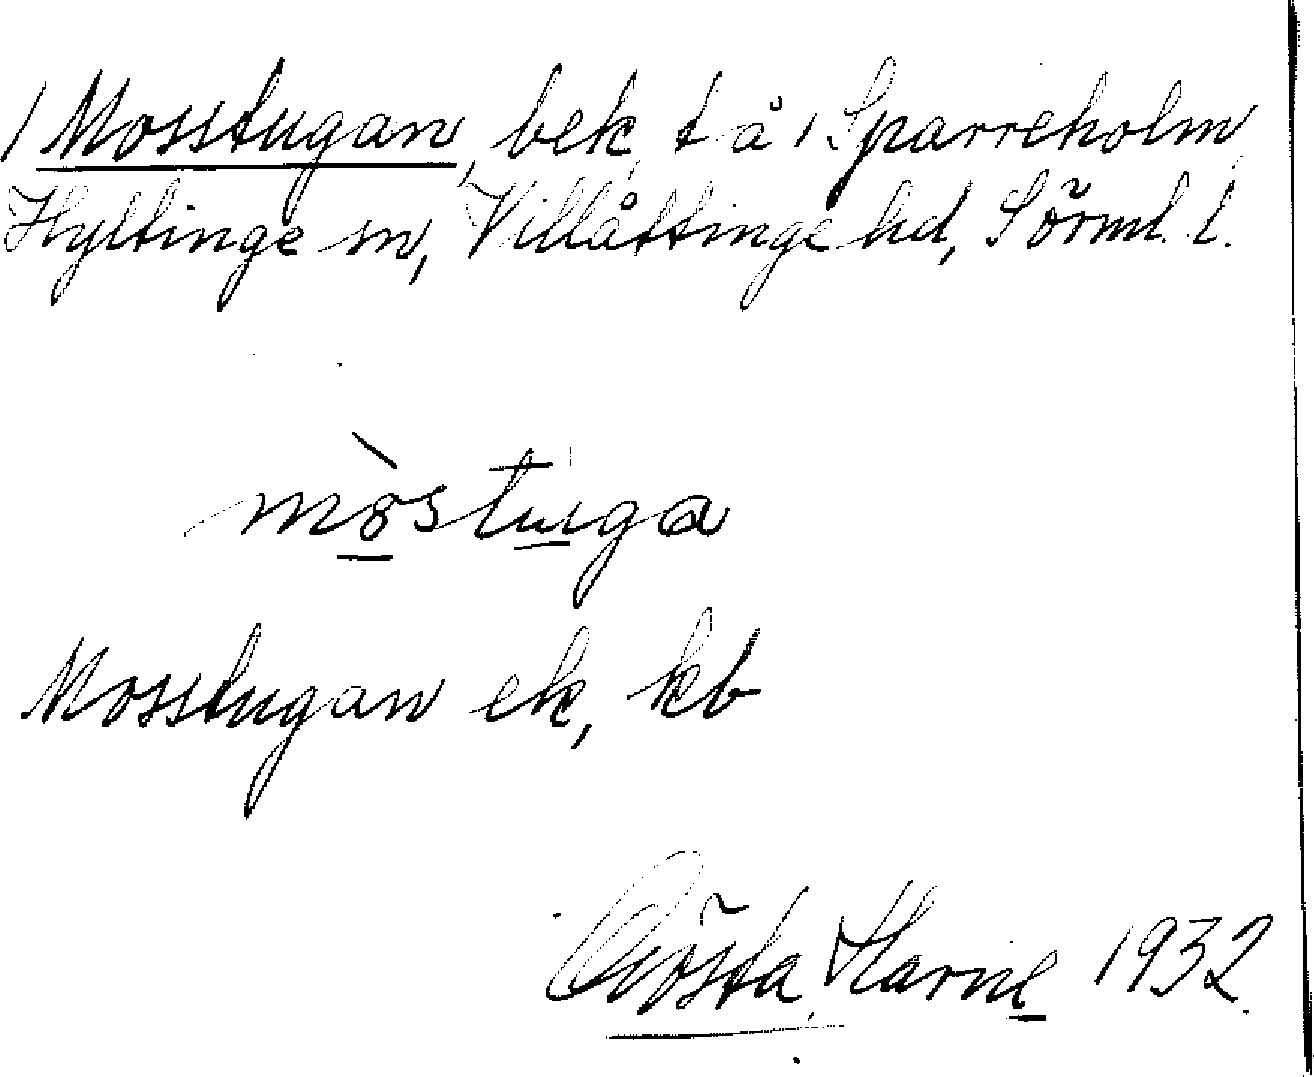 / Mosstugan, bek, t å / Sparreholm,
Hyltinge sn, Villåttinge hd, Sörml. l.
mòstuga
Mosstugan ek, kb
Gösta Harne 1932.